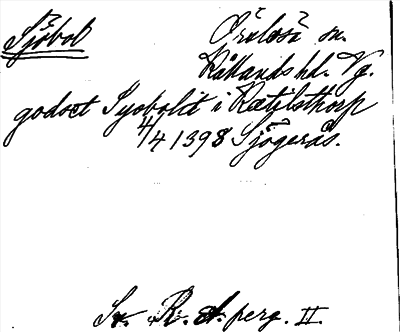 Sjöbol Örslösa sn.
Kållands hd. Vg.
godset Syobolit i Kætilsthorp
4/4 1398 Sjögerås.
Sv. R. A. perg. II.